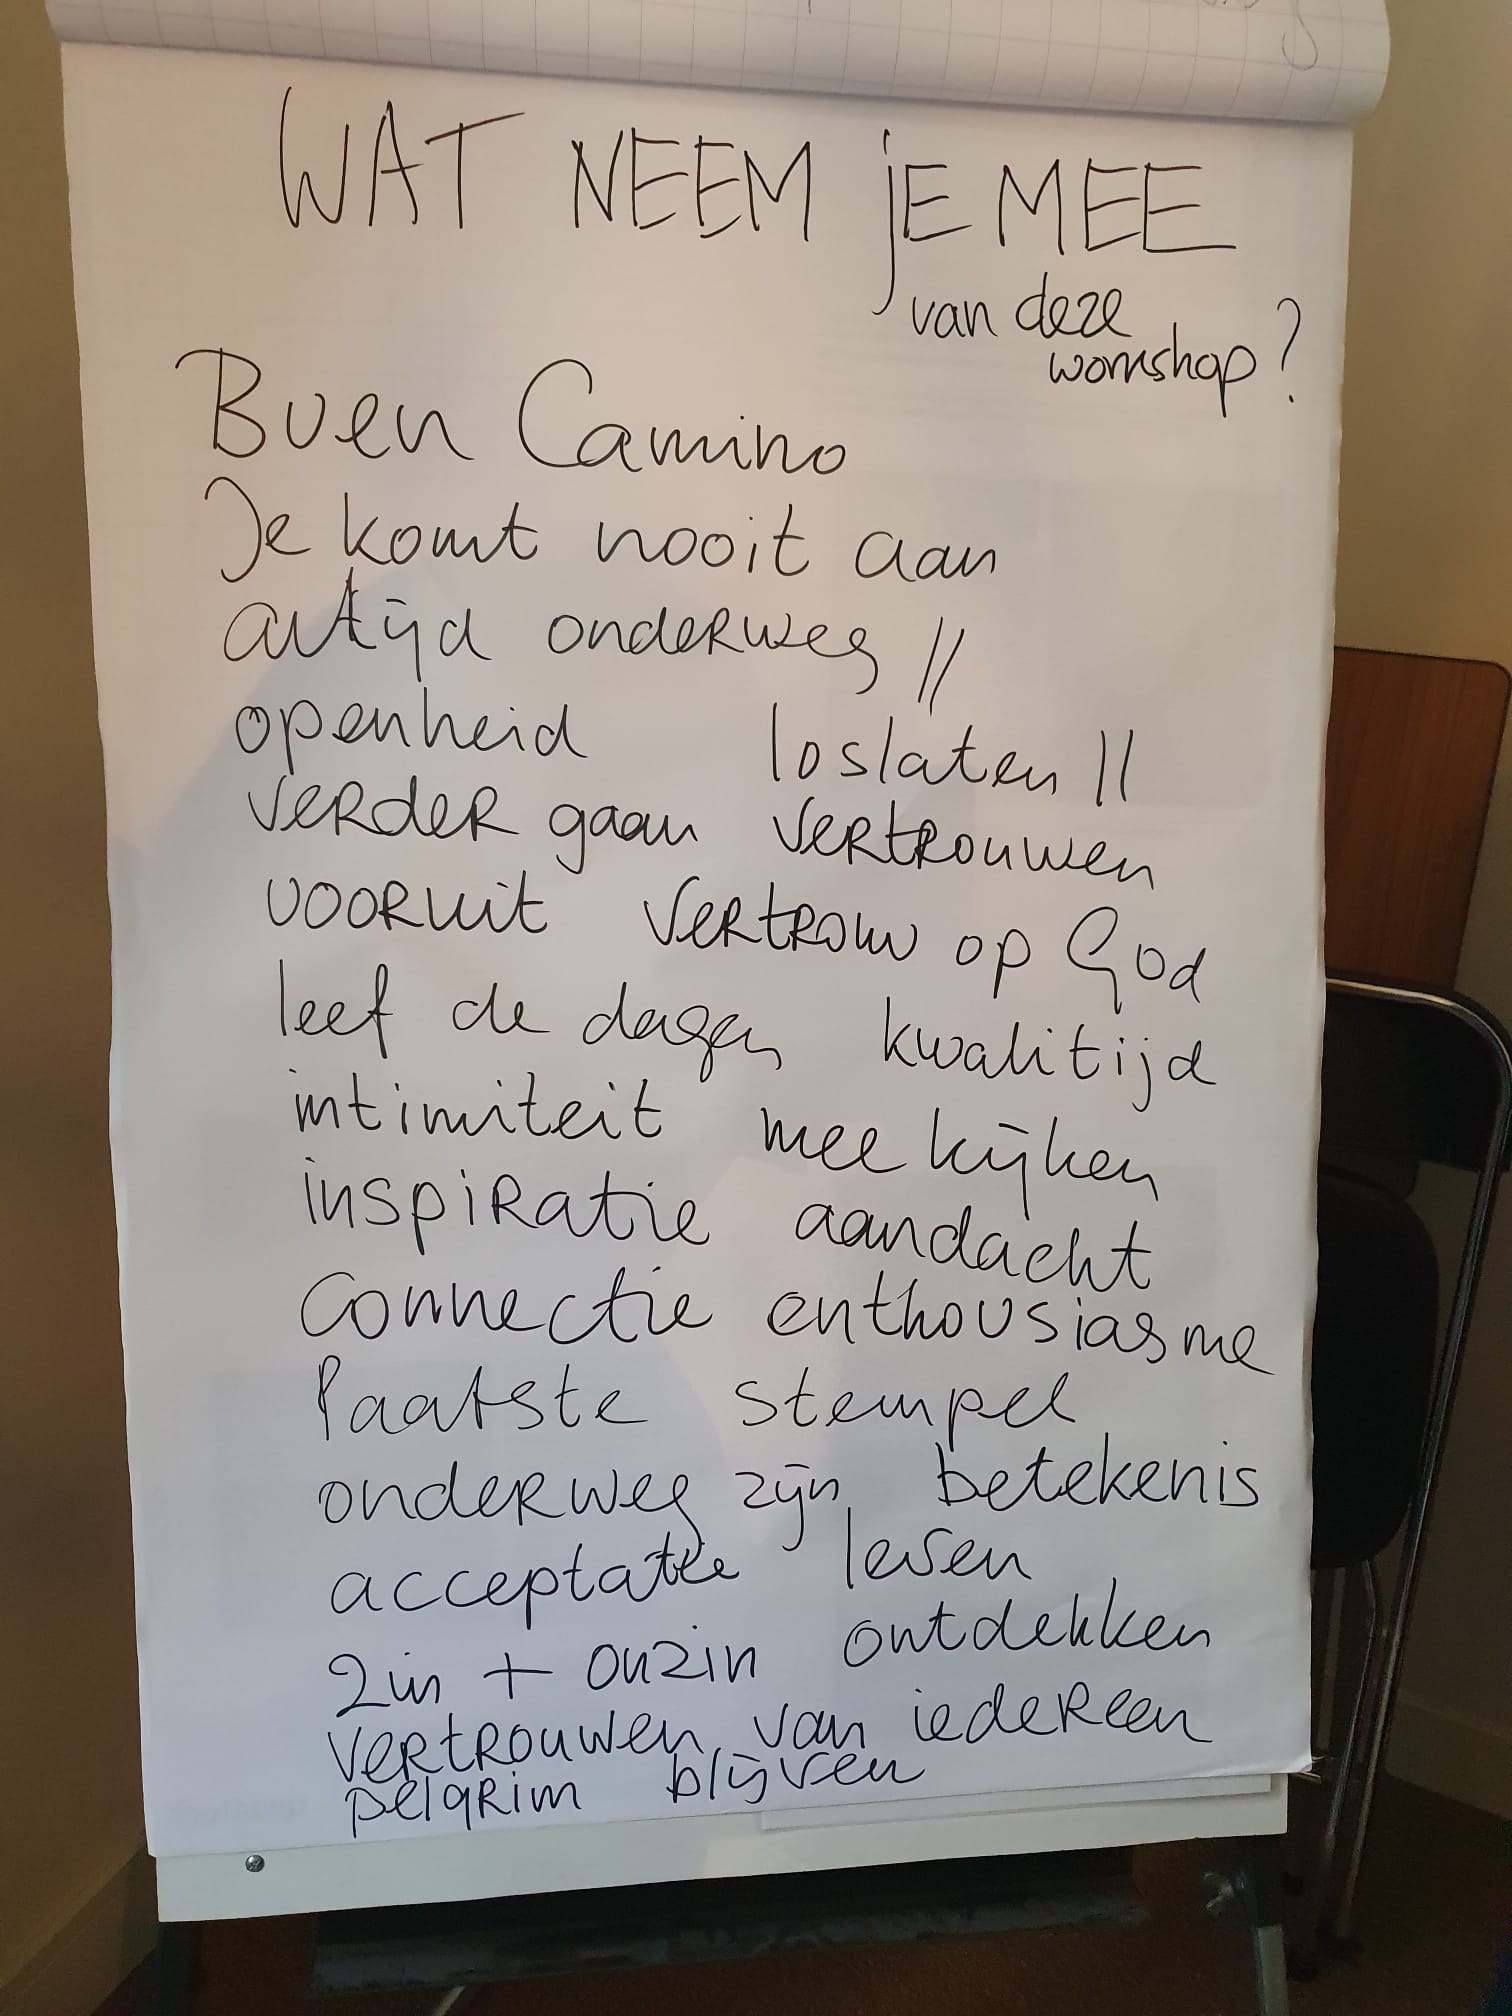 WAT NEEM JE MEE
van deze
womshop?
Buen Camino
Je komt nooit aan
altijd onderweg //
openheid loslaten ||
verder gaan vertrouwen
vooruit vertrouw op God
leef de dagen kwalitijd
intimiteit mee kijken
inspiratie aandacht
connectie enthousiasme
laatste stempel
onderweg zijn betekenis
acceptatie lessen
zin + onzin ontdekken
vertrouwen van iedereen
pelgrim blijven